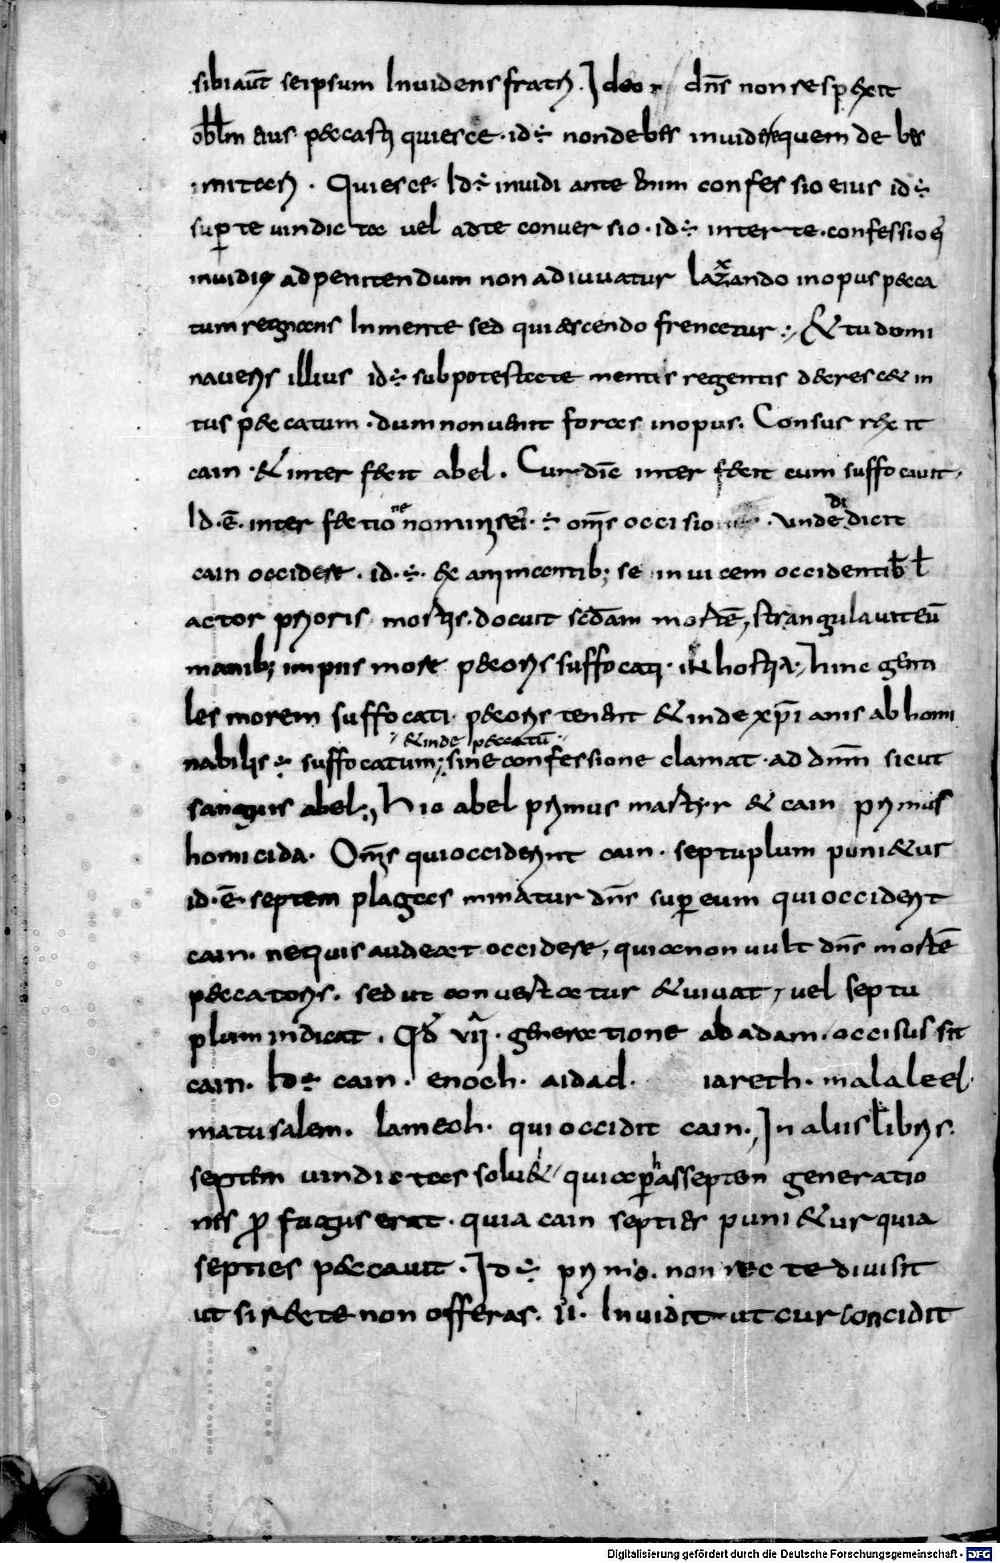 sibi aut̄ seipsum Inuidens fratri. Ideo dn̄s non respexit
obl̄m eius peccasti quiesce · id ÷ non debes inuidere quem debes
imitari . Quiesce. Id ÷ inuidi ante enim confessio eius id ÷
sup te uindicta uel ad te conuersio · id ÷ inter te · confessio ei
inuidię ad penitendum non adiuuatur laxando in opus pecca
tum regnans In mente sed quiescendo frenetur : Et tu domi
naueris illius id ÷ sub potestate mentis regentis decrescet in
tus peccatum · dum non uenit foras in opus. Consurrexit
cain · & interfecit abel . Cur dīc interfecit cum suffocauit,
Id · ē · interfectionē nomin ÷ om̄s occisio · unde dicit
cain occidere · id · ÷ · ex animantib; se inuicem occidentib: ł
actor prioris mortis · docuit scdam mortē, strangulauit eū
manib; impiis more pecoris suffocati · in hostia, hinc genti
les morem suffocati · pecoris tenent & inde xp̄i anis abhomi
nabilis ÷ suffocatum; sine confessione clamat · ad dnm̄ sicut
& inde peccatū
sanguis abel;, Hic abel primus martyr & cain primus
homicida · Om̄s qui occiderint cain · septuplum punietur
id · ē · septem plagas minatur dn̄s super eum qui occiderit
cain. ne quis audeat occidere, quia non uult dn̄s mortē
peccatoris. sed ut conuertatur & uiuat, uel septu
plum indicat . Qd VII · generatione ab adam · occisus sit
cain. Id ÷ cain · enoch · aidad. iareth · malaleel·
matusalem. lamech · qui occidit cain., In aliis libris.
septem uindictas soluet, quia p septem generatio
nes ꝓfugus erat · quia cain septies punietur quia
septies peccauit · Id ÷ primo. non recte diuisit
ut si recte non offeras. II · Inuidit ut cur concidit
Digitalisierung gefördert durch die Deutsche Forschungsgemeinschaft - DFG